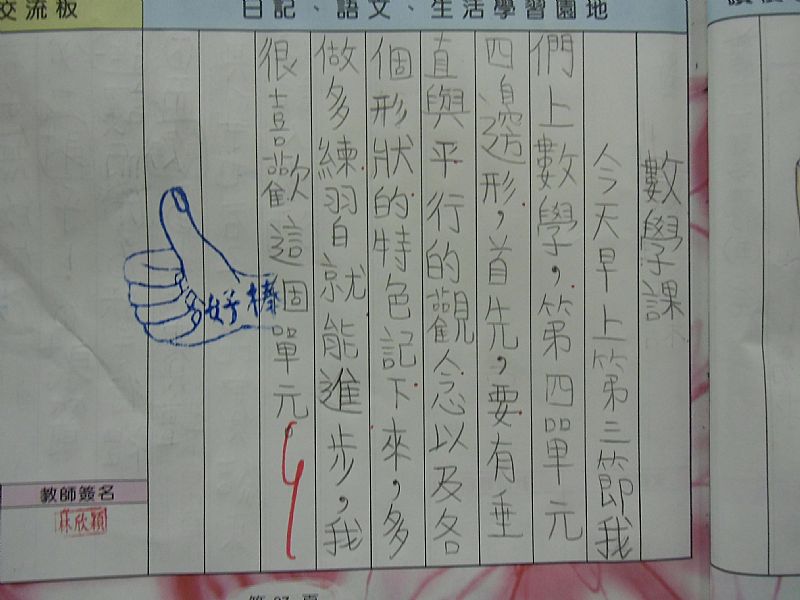 交流板
日記、語文、生活學習園地
數學課
今天早上第三節我
們上數學，第四單元
四邊形，首先，要有垂
直與平行的觀念以及各
個形狀的特色記下來，多
做多練習就能進步，我
很喜歡這個單元。
好棒
教師簽名
林欣穎